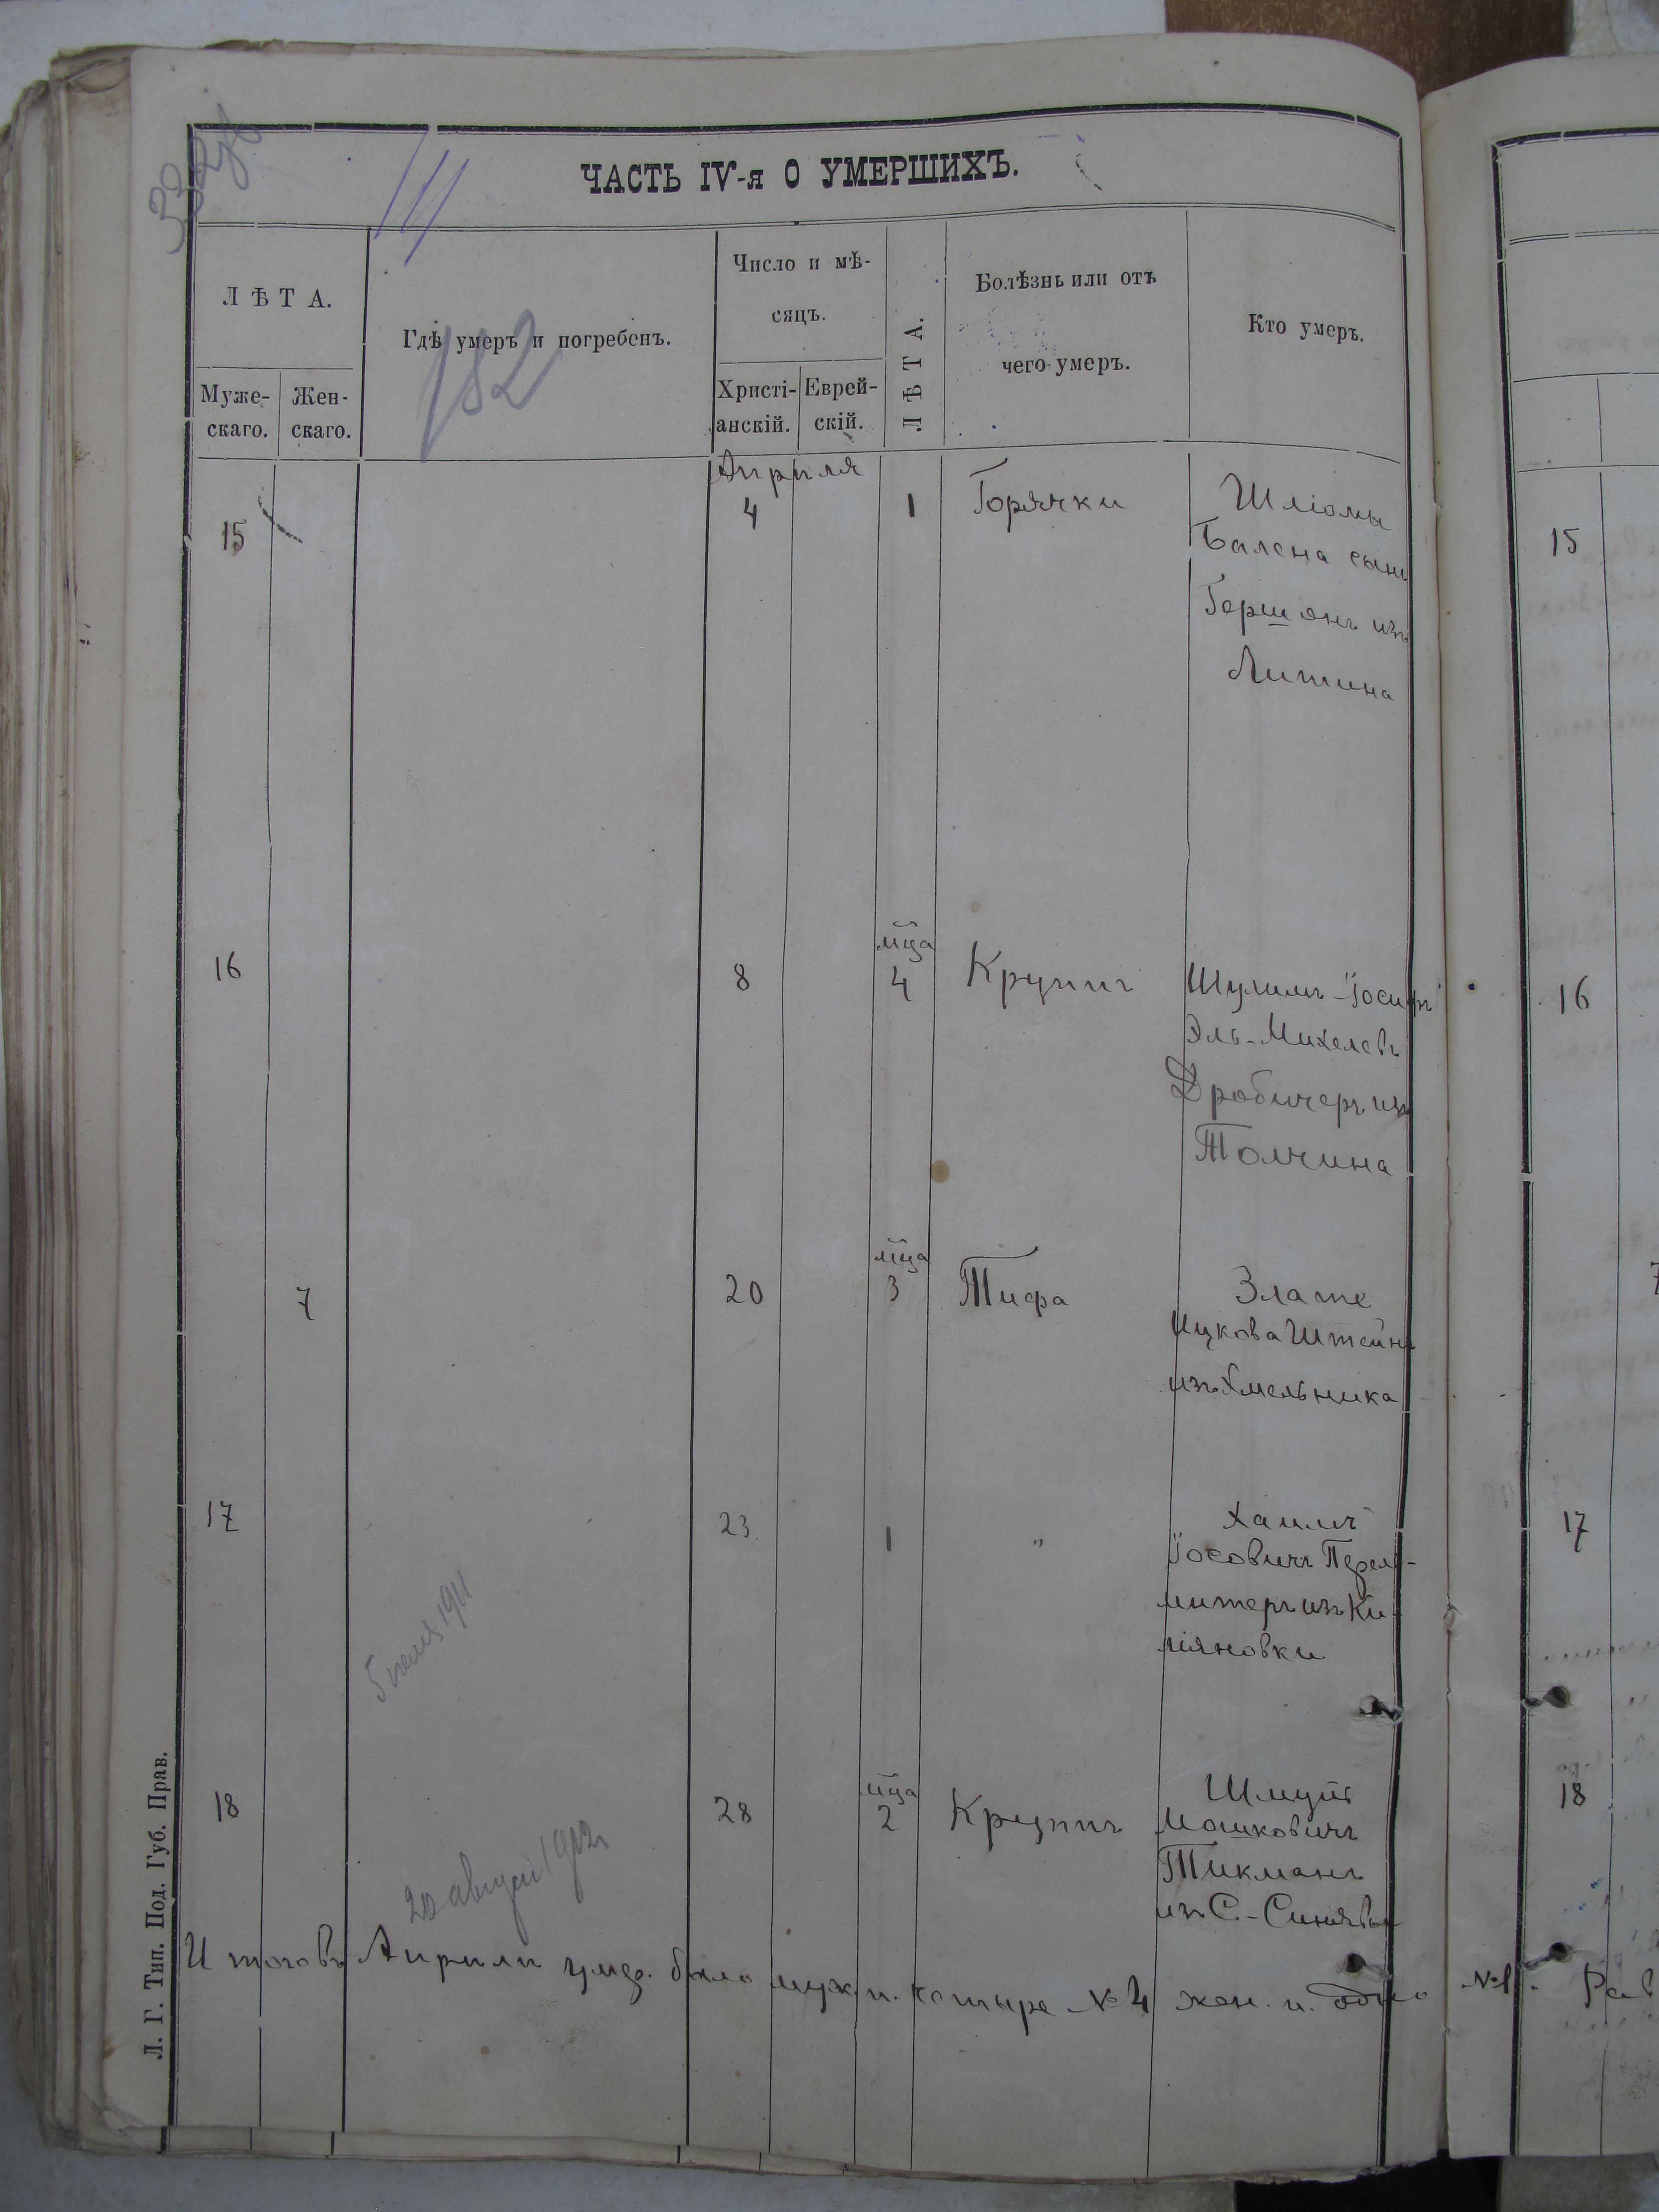 ЧАСТЬ IV-я О УМЕРШИХЪ.
182
ЛѢТА.
Муже-
скаго.
Жен-
скаго.
Гдѣ умеръ и погребенъ.
Число и мѣ-
сяцъ.
Христі-
анскій.
Еврей-
скій.
ЛѢТА.
Болѣзнь или отъ
чего умеръ.
Кто умеръ.
Априля
15 4 1 Горячки Шліомы
сынъ
Гершонъ изъ
Литина
15
мца
16 8 4 Крупъ Шулимъ-Іосифъ
Эль-Михелевъ
Дробичеръ изъ
Толчина
16
мца
7 20 3 Тифа Злате
Ицкова Штейнъ
изъ Хмельника
17 23 1 " Хаимъ
Іосовичъ Перель-
митеръ изъ Ки-
ліяновки
17
мца
18 28 2 Крупъ Шмуль
Мошковичъ
Тикманъ
изъ С.-Синявы
18
20 август 1912
Априли было муж. п. четыре № 4 жен. п. одно №1. Рав
Л. Г. Тип. Под. Губ. Прав.